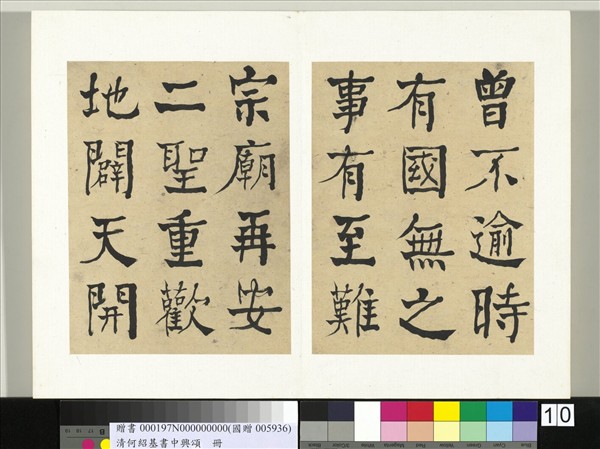 曾不逾時
有國無之
事有至難
宗廟再安
二聖重歡
地闢天開
10
贈書 000197N000000000(國贈 005936)
清何紹基書中興頌 冊